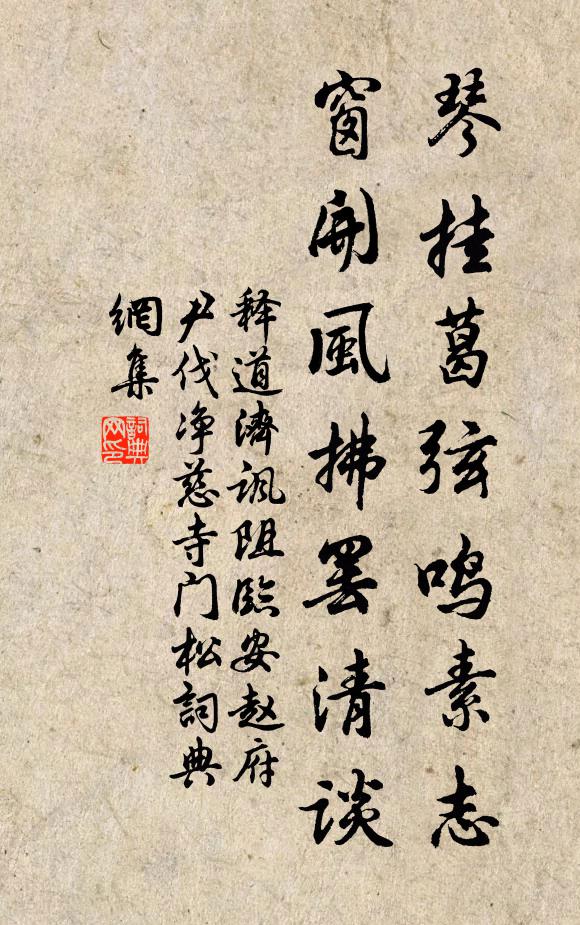 琴挂葛弦鸣素志
窗開風拂罢清谈
释道濟讽阻臨安赵府
尹伐净慈寺门松詞典
網集
詞典网印